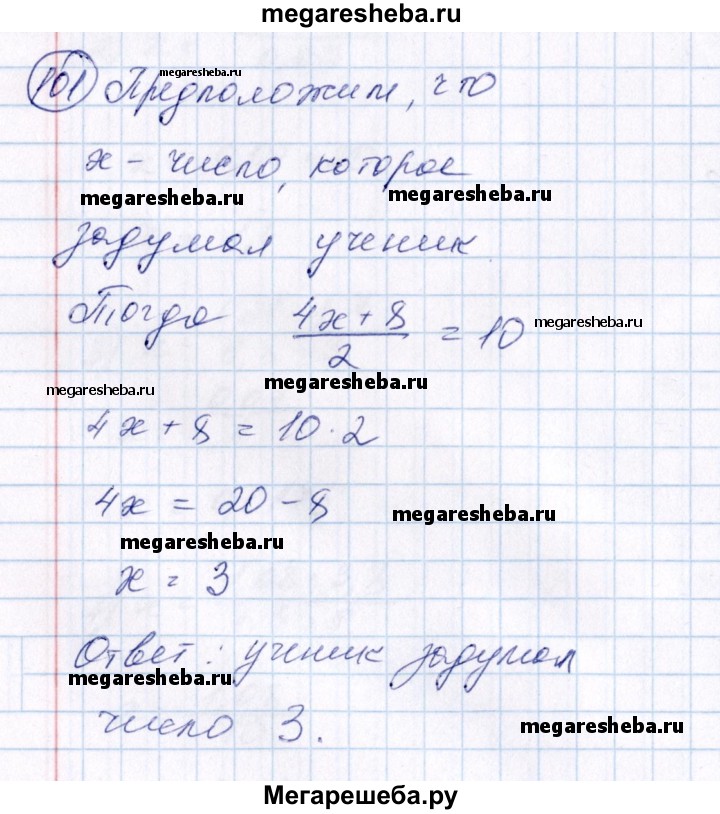 megaresheba.ru
101 Предположим, что
megaresheba.ru
x - число, которое
megaresheba.ru megaresheba.ru
задумал ученик
Тогда (4x + 8)/2 = 10
megaresheba.ru
megaresheba.ru
megaresheba.ru
4x + 8 = 10 · 2
4x = 20 - 8
megaresheba.ru
megaresheba.ru
x = 3
Ответ: ученик задумал
megaresheba.ru
число 3.
megaresheba.ru
Мегарешеба.ру